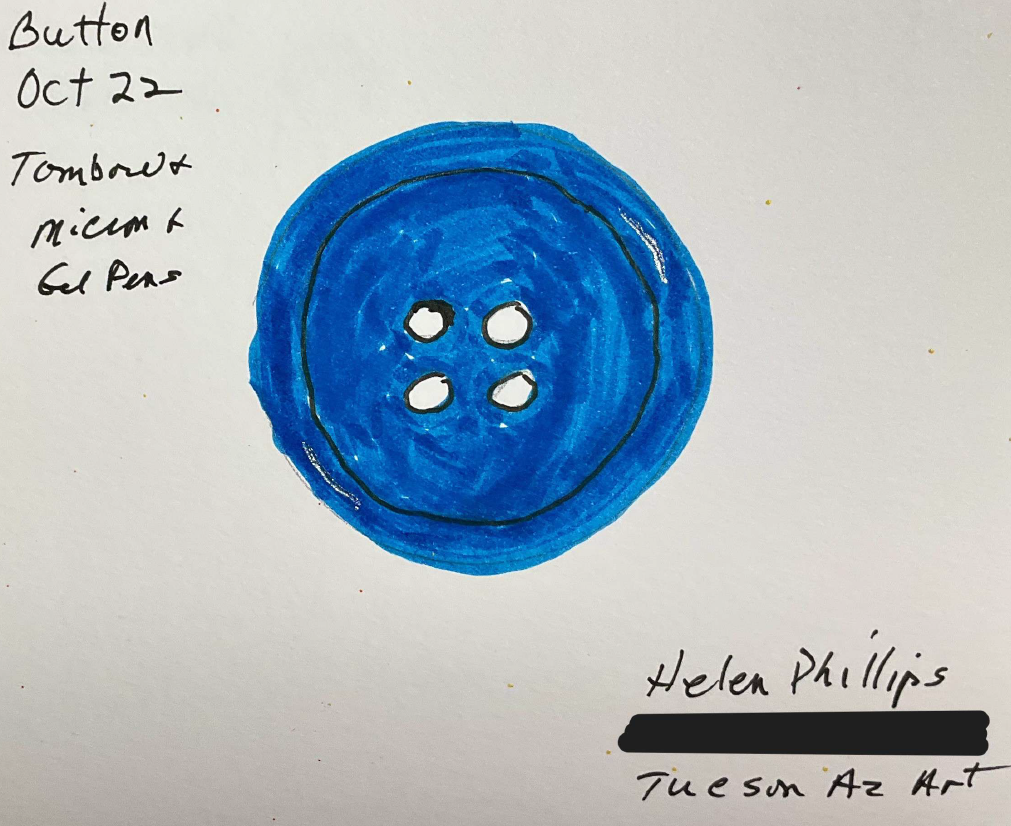 Button
Oct 22
Tombow &
Micron &
Gel Pens
Helen Phillips
Tucson Az Art